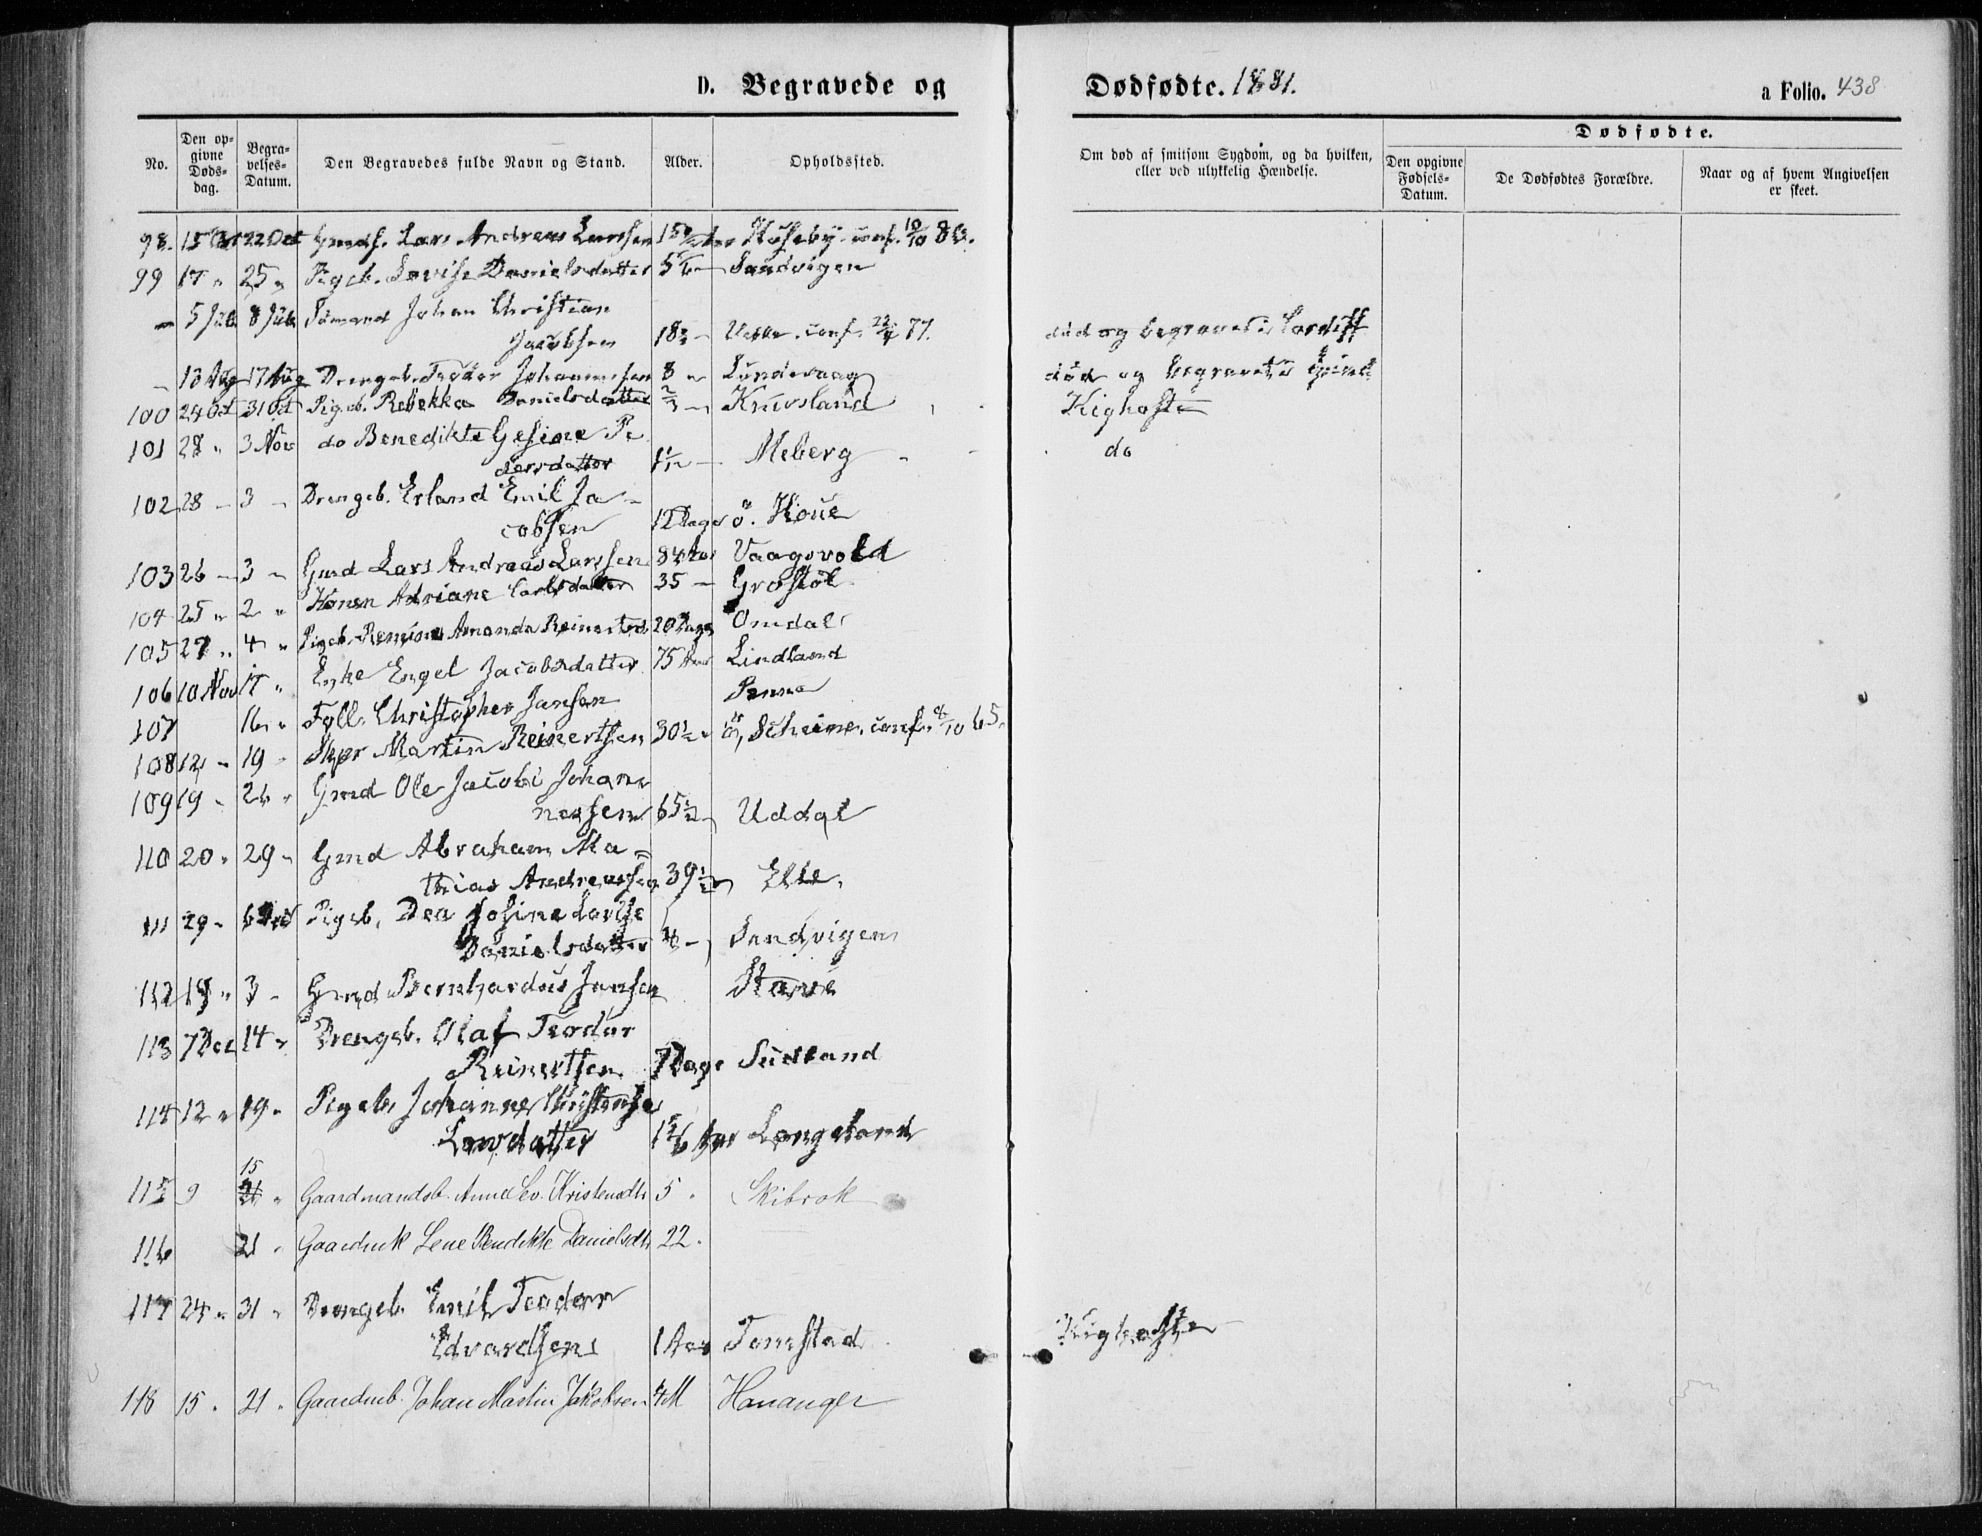 D. Begravede og
Dødfødte. 1881.
a Folio. 438
No.
Den opgivne Døds-dag.
Begravelses-Datum.
Den Begravedes fulde Navn og Stand.
Alder.
Opholdssted.
Om død af smitsom Sygdom, og da hvilken, eller ved ulykkelig Hændelse.
Dødfødte.
Den opgivne Fødsels-Datum.
De Dødfødtes Forældre.
Naar og af hvem Angivelsen er skeet.
98. 15 Oct 22 Oct Gmds. Lars Andreas Larssen Huseby conf. 10/10 80.
99 17 " 25 " Pigeb. Lovise Danielsdatter Sandvigen
5 Juli 8 Juli Johan Christian
Jacobsen 18 conf. 77. død og begravet i Cardiff
13 Aug 17 Aug Drengeb. Johannessen 8 " Lundevaag død og begravet i
100 24 Oct 31 Oct Pigeb. Rebekka Danielsdatter Knivsland Kighoste
101 28 " 3 Nov do Benedikte Gesine Pe
dersdatter Meberg do
102 28 - 3 - Drengeb. Erland Emil Ja-
cobsen 12 Dage ö. Houe
103 26 - 3 - Gmd Lars Andreas Larssen 84 Aar Vaagsvold
104 25 " 2 " Konen Adriane Carlsdatter 35 - Grostöl
105 27 " 4 " Pigeb. Amanda Reinertsd 20 Dage Omdal
106 10 Nov 17 " Enke Engel Jacobsdatter 75 Aar Lindland
107 16 " Christopher Jansen Penne
108 12 " 19 " Martin Reinertsen 30½ " conf. 8/10 65.
109 19 " 26 " Gmd Ole Jacob Johan-
nessen 65½ Uddal
110 20 " 29 " Gmd Abraham Ma=
thias Andreassen 39½ Elle.
111 29 " 6 Dec Pigeb. Dea Josine Lovise
Danielsdatter Sandvigen
112 3 - Gmd Bernhardus Jansen Stave
113 7 Dec 14 " Drengeb. Olaf Teodor
Reinertsen 7 Dage Sudland
114 12 " 19 " Pigeb. Johanne
Larsdatter Aar Langeland
115 9 15 21 " Gaardmandsb. Anne Sev. Kristensdtr 5 " Skibrok
116 21 " Gaardmk Lene Bendikte Danielsdtr 22 "
117 24 " 31 " Drengeb. Emil Teodor
Edvardsen 1 Aar Tomstad Kighoste
118 15 " 21 " Gaardmb. Johan Martin Jakobsen 4 M Hananger